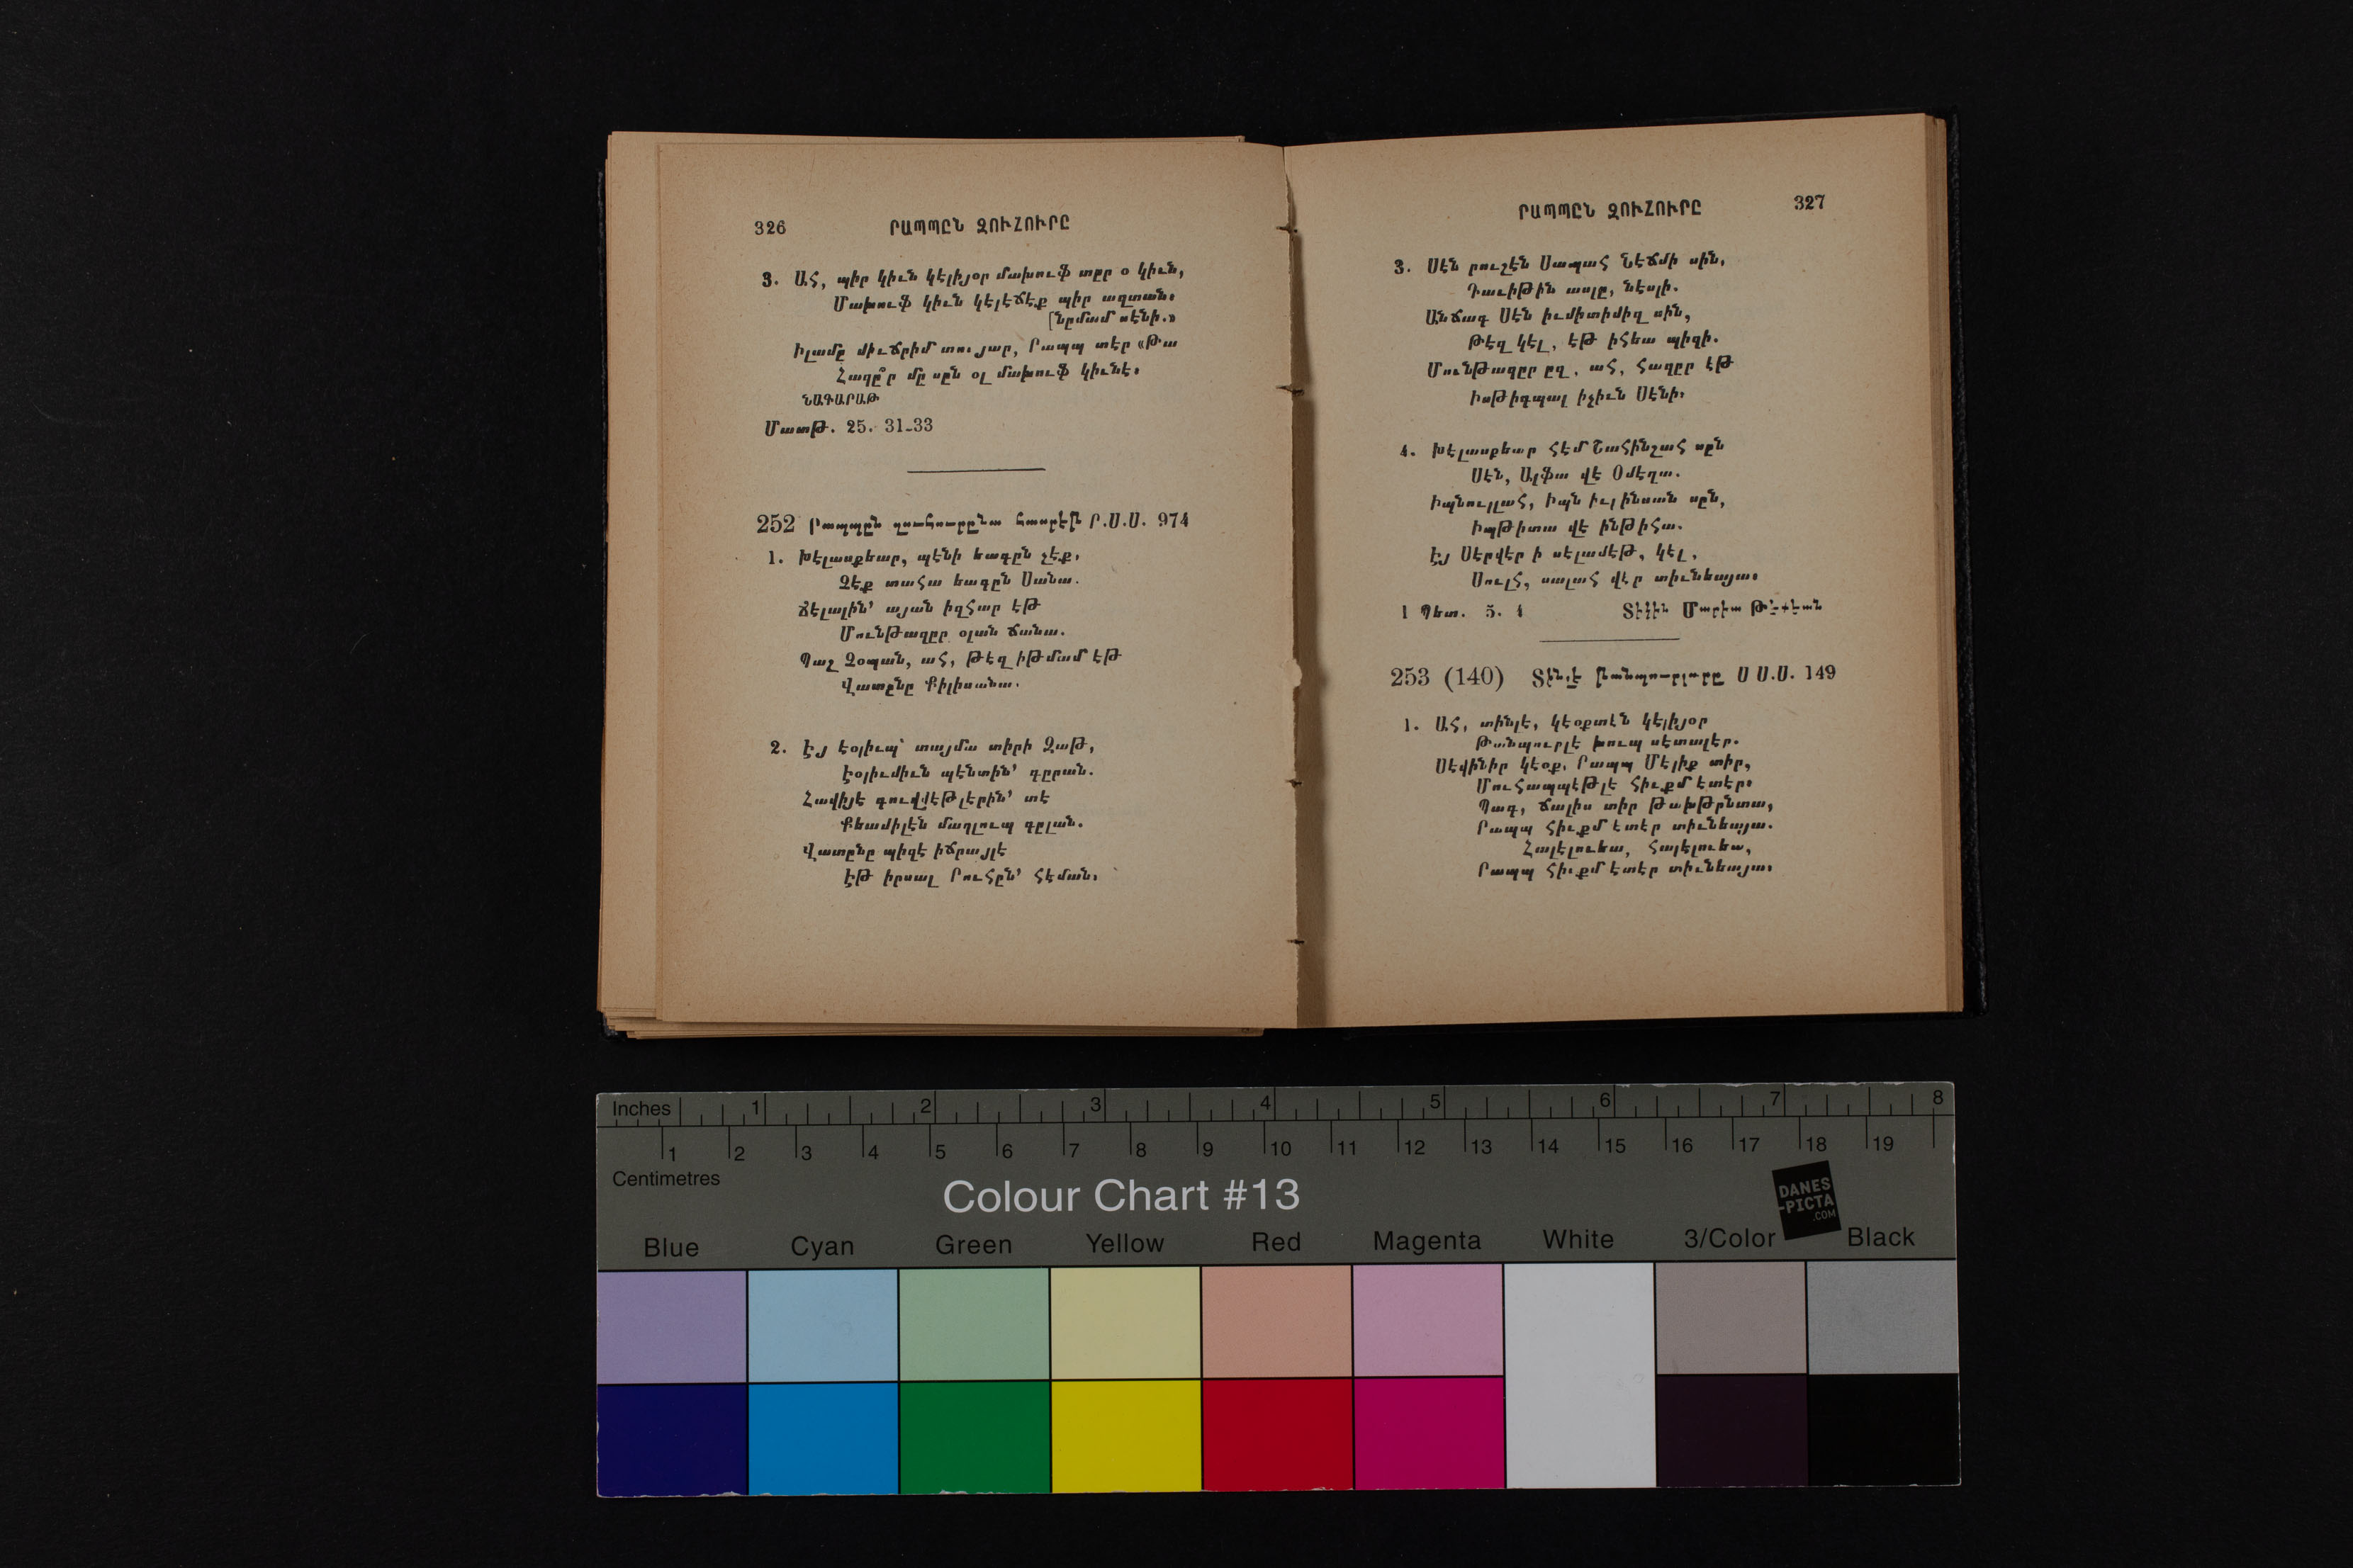 326 ՐԱՊՊԸՆ ԶՈՒՀՈՒՐԸ
3. ԱՀ, պիր կիւն կէլիյօր մախուֆ տըր օ կիւն,
Մախուֆ կիւն կէլէճէք պիր ազտան։
[նըմամ սէնի.»
Իլամը միւճրիմ տույար, Րապպ տէր «Թա
Հազը՞ր մը սըն օլ մախուֆ կիւնէ։
ՆԱԳԱՐԱԹ
Մատթ. 25. 31-33
252 Րապպըն զուհուրընա հասրէթ Ր.Ս.Ս. 974
1. Խէլասքեար, պէնի եագըն չէք,
Չէք տահա եագըն Սանա.
Ճէլալին՚ այան իզհար էթ
Մունթազըր օլան ճանա.
Պաշ Չօպան, ահ, թէզ իթմամ էթ
Վատընը Քիլիսանա.
2. Էյ էօլիւպ՝ տայմա տիրի Զաթ,
Էօլիւմիւն պէնտին՚ գըրան.
Հավիյէ գուվվէթլէրին՚ տէ
Քեամիլէն մաղլուպ գըլան.
Վատընը պիզէ իճրայլէ
Էթ իրսալ Րուհըն՚ հէման։
ՐԱՊՊԸՆ ԶՈՒՀՈՒՐԸ 327
3. Սէն րուշէն Սապահ Նէճմի սին,
Դաւիթին ասլը, նէսլի.
Անճագ Սէն իւմիտիմիզ սին,
Թէզ կէլ, էթ իհեա պիզի.
Մունթազըր ըզ, ահ, հազըր էթ
Իսթիգպալ իչիւն Սէնի։
4. Խէլասքեար հէմ Շահինշահ սըն
Սէն, Ալֆա վէ Օմէղա.
Իպնուլլահ, Իպն իւլ ինսան սըն,
Իպթիտա վէ ինթիհա.
Էյ Սէրվէր ի սէլամէթ, կէլ,
Սուլհ, սալահ վէր տիւնեայա։
1 Պետ. 5. 4 Տիկին Մարիա
253 (140) Տինլէ Ս Ս.Ս. 149
1. ԱՀ, տինլէ, կէօքտէն կէլիյօր
Թանպուրլէ խուպ սէտալէր.
Սէվինիր կէօք, Րապպ Մէլիք տիր,
Մուհապպէթլէ հիւքմ էտէր։
Պագ, ճալիս տիր Թախթընտա,
Րապպ հիւքմ էտէր տիւնեայա.
Հալէլուեա, հալէլուեա,
Րապպ հիւքմ էտէր տիւնեայա։
Inches 1 2 3 4 5 6 7 8
1 2 3 4 5 6 7 8 9 10 11 12 13 14 15 16 17 18 19
Centimetres
Colour Chart #13
DANES
-PICTA
.COM
Blue Cyan Green Yellow Red Magenta White 3/Color Black